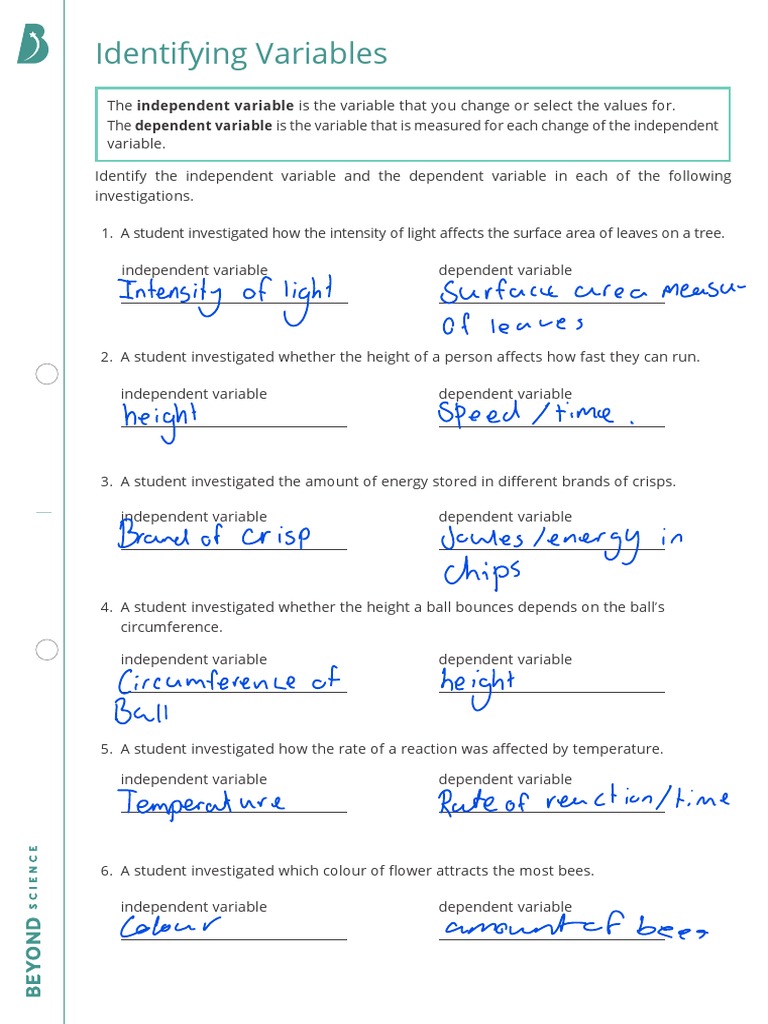 Identifying Variables
The independent variable is the variable that you change or select the values for.
The dependent variable is the variable that is measured for each change of the independent
variable.
Identify the independent variable and the dependent variable in each of the following
investigations.
1. A student investigated how the intensity of light affects the surface area of leaves on a tree.
independent variable dependent variable
Intensity of light Surface area measu-
Of leaves
2. A student investigated whether the height of a person affects how fast they can run.
independent variable dependent variable
height Speed / time.
3. A student investigated the amount of energy stored in different brands of crisps.
independent variable dependent variable
Brand of crisp Joules/energy in
chips
4. A student investigated whether the height a ball bounces depends on the ball's
circumference.
independent variable dependent variable
Circumference of height
Ball
5. A student investigated how the rate of a reaction was affected by temperature.
independent variable dependent variable
Temperature Rate of reaction/time
6. A student investigated which colour of flower attracts the most bees.
independent variable dependent variable
Colour amount of bees
BEYOND SCIENCE